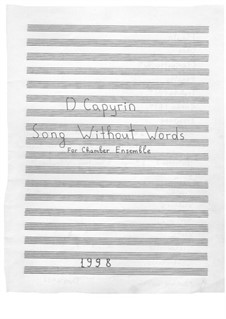 D Capyrin
Song Without Words
For Chamber Ensemble
1998